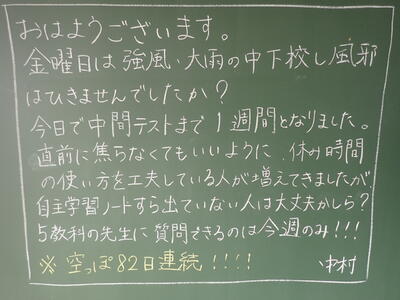 おはようございます。
金曜日は強風、大雨の中下校し風邪
はひきませんでしたか?
今日で中間テストまで1週間となりました。
直前に焦らなくてもいいように、休み時間
の使い方を工夫している人が増えてきましたが、
自主学習ノートすら出ていない人は大丈夫かしら?
5教科の先生に質問できるのは今週のみ!!!
※空っぽ82日連続!!!! 中村